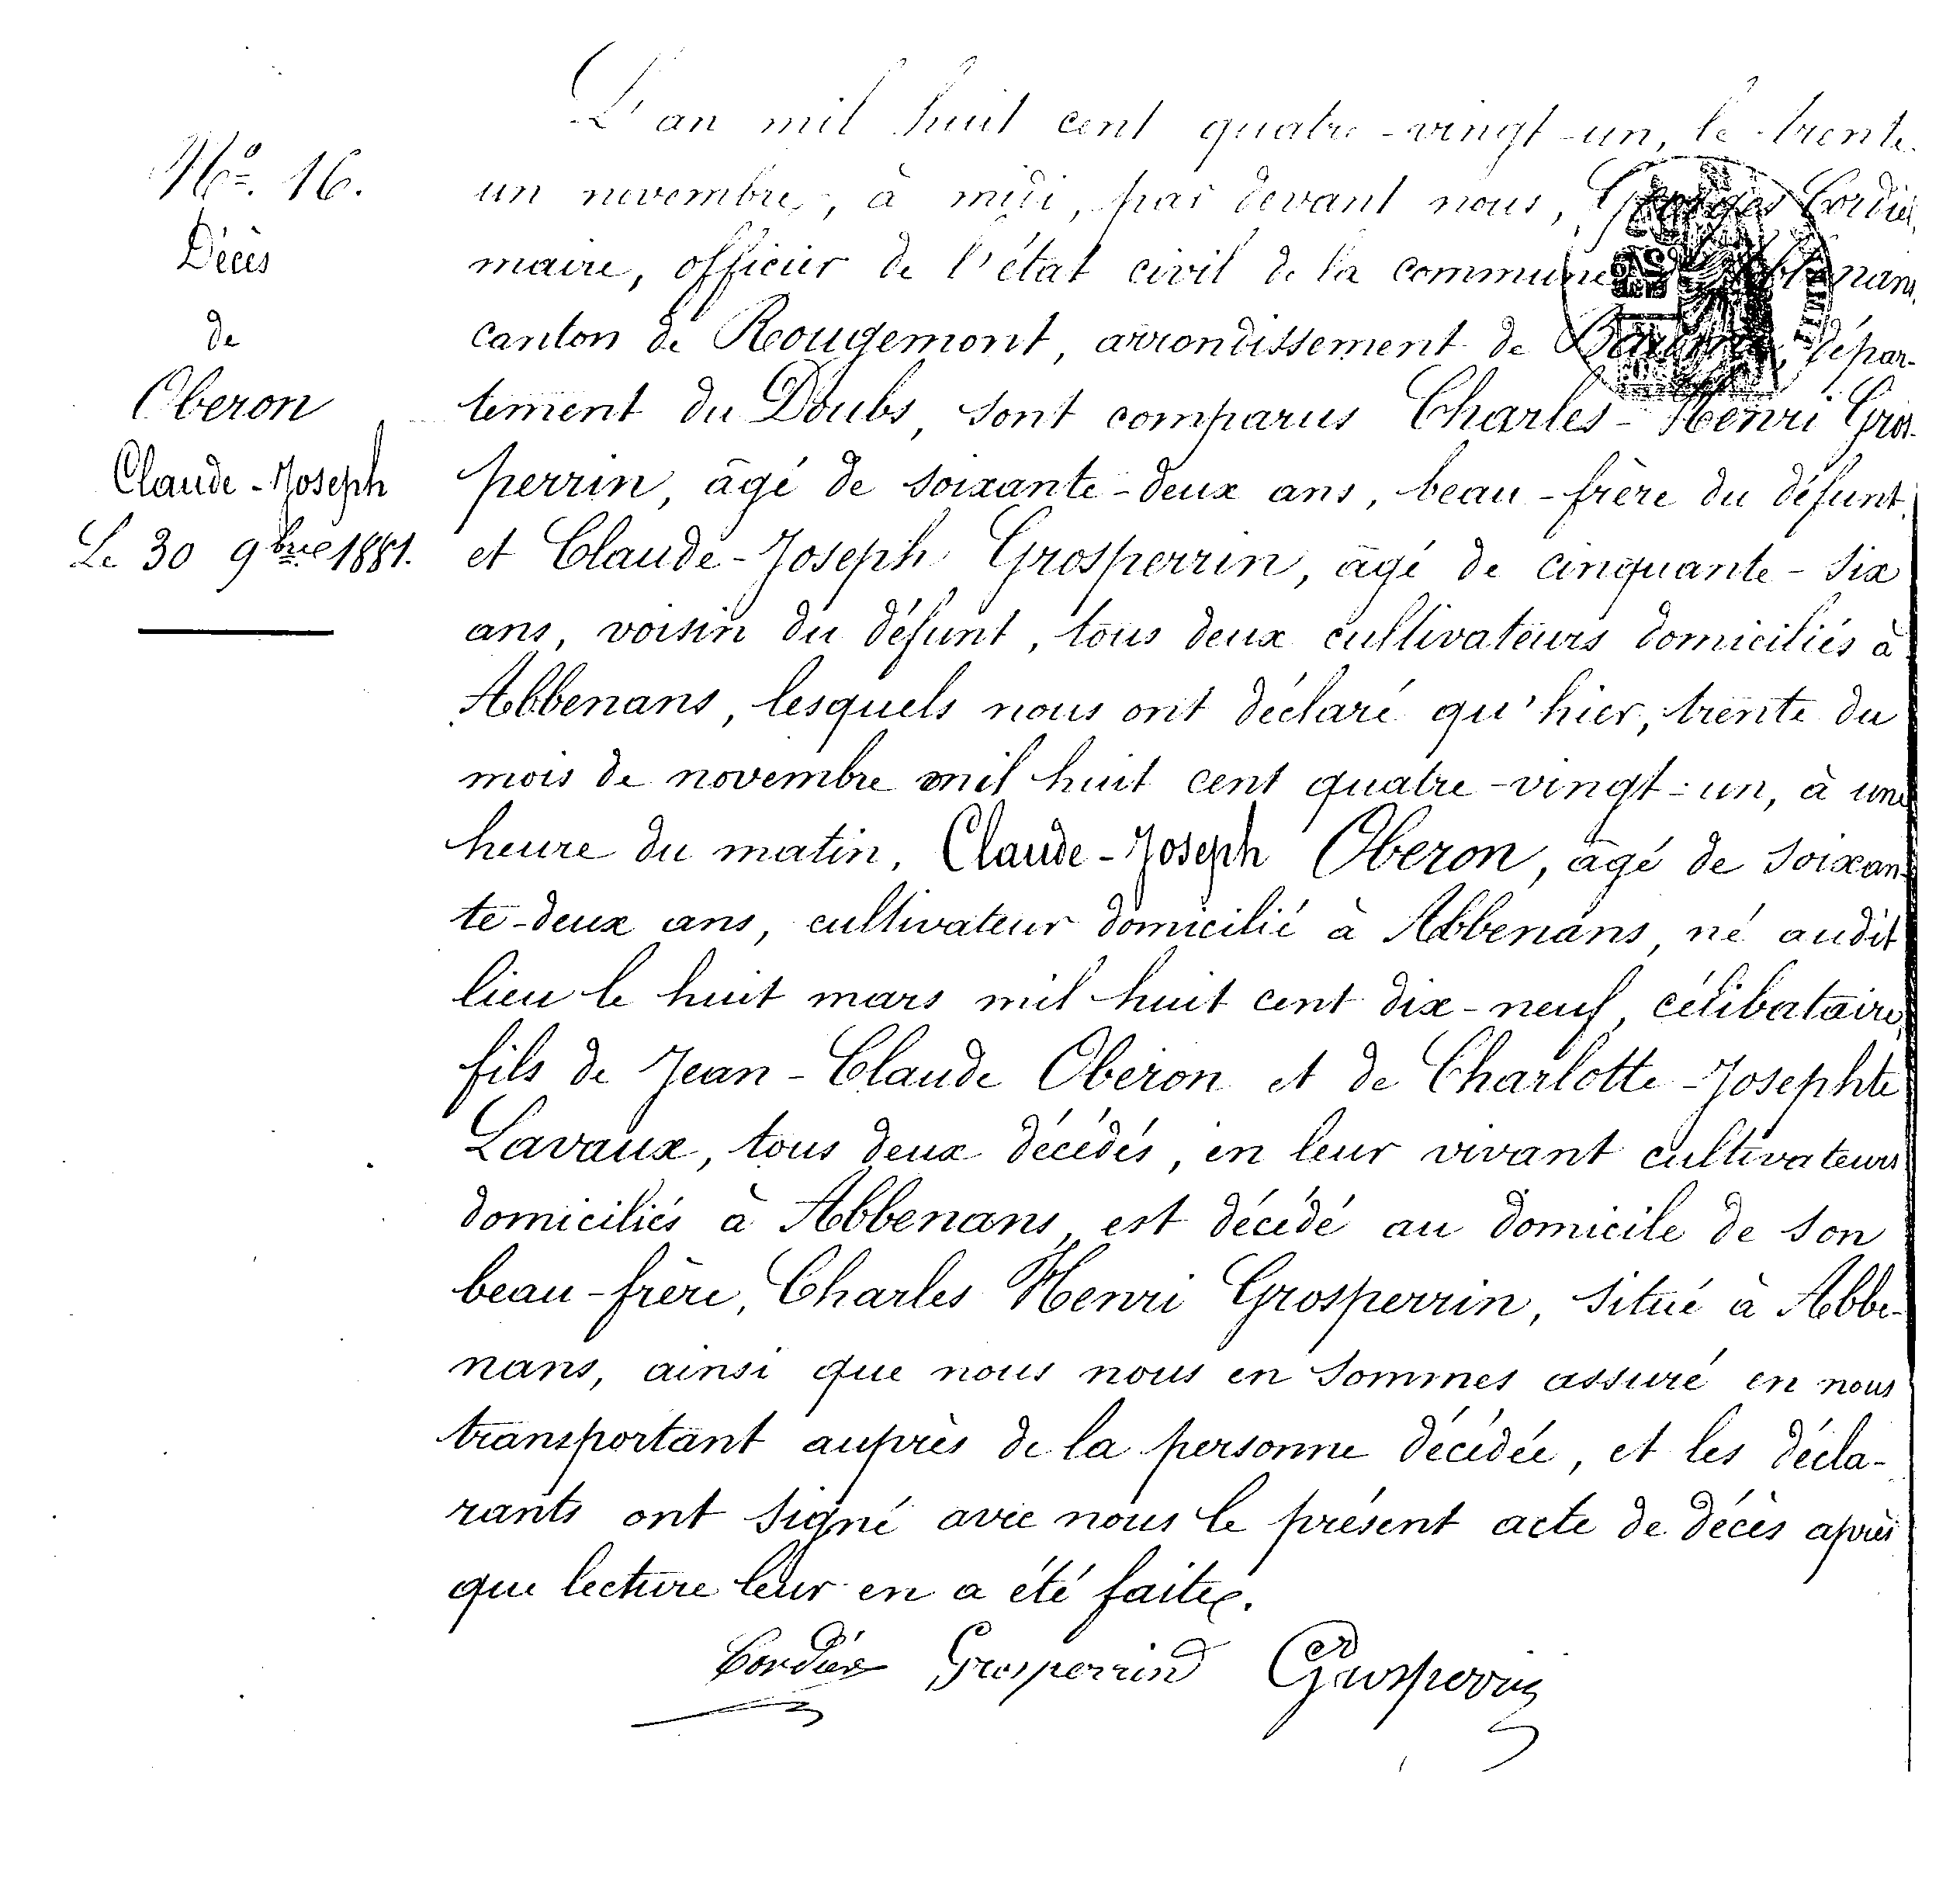 No. 16.
Décès
de
Oberon
Claude-Joseph
Le 30 9bre 1881.
L'an mil huit cent quatre-vingt-un, le trente
un novembre, à midi, par devant nous, Georges Cordier,
maire, officier de l'état civil de la commune Abbenans,
canton de Rougemont, arrondissement de Baume, dépar-
tement du Doubs, sont comparus Charles-Henri Gros-
perrin, âgé de soixante-deux ans, beau-frère du défunt,
et Claude-Joseph Grosperrin, âgé de cinquante-six
ans, voisin du défunt, tous deux cultivateurs domiciliés à
Abbenans, lesquels nous ont déclaré qu'hier, trente du
mois de novembre mil huit cent quatre-vingt-un, à une
heure du matin, Claude-Joseph Oberon, âgé de soixan-
te-deux ans, cultivateur domicilié à Abbenans, né audit
lieu le huit mars mil huit cent dix-neuf, célibataire,
fils de Jean-Claude Oberon et de Charlotte-Josephte
Lavaux, tous deux décédés, en leur vivant cultivateurs
domiciliés à Abbenans, est décédé au domicile de son
beau-frère, Charles Henri Grosperrin, situé à Abbe-
nans, ainsi que nous nous en sommes assuré en nous
transportant auprès de la personne décédée, et les décla-
rants ont signé avec nous le présent acte de décès après
que lecture leur en a été faite.
Cordier Grosperrin Grosperrin